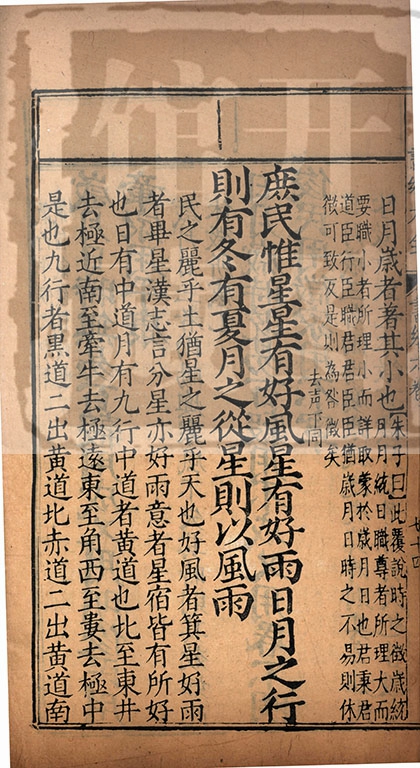 日月歲者著其小也
朱子曰此覆說時之徵歲統
月月統日職尊者所理大而
要職小者所理小而詳取蒙於歲月日也君秉君
道臣行臣職君君臣臣猶歲月日時之不易則休
徵可致反是則為咎徵矣
庶民惟星星有好風星有好雨日月之行
去声下同
則有冬有夏月之從星則以風雨
民之麗乎土猶星之麗乎天也好風者箕星好雨
者畢星漢志言分星亦好雨意者星宿皆有所好
也日有中道月有九行中道者黃道也北至東井
去極近南至牽牛去極遠東至角西至婁去極中
是也九行者黑道二出黃道北赤道二出黃道南